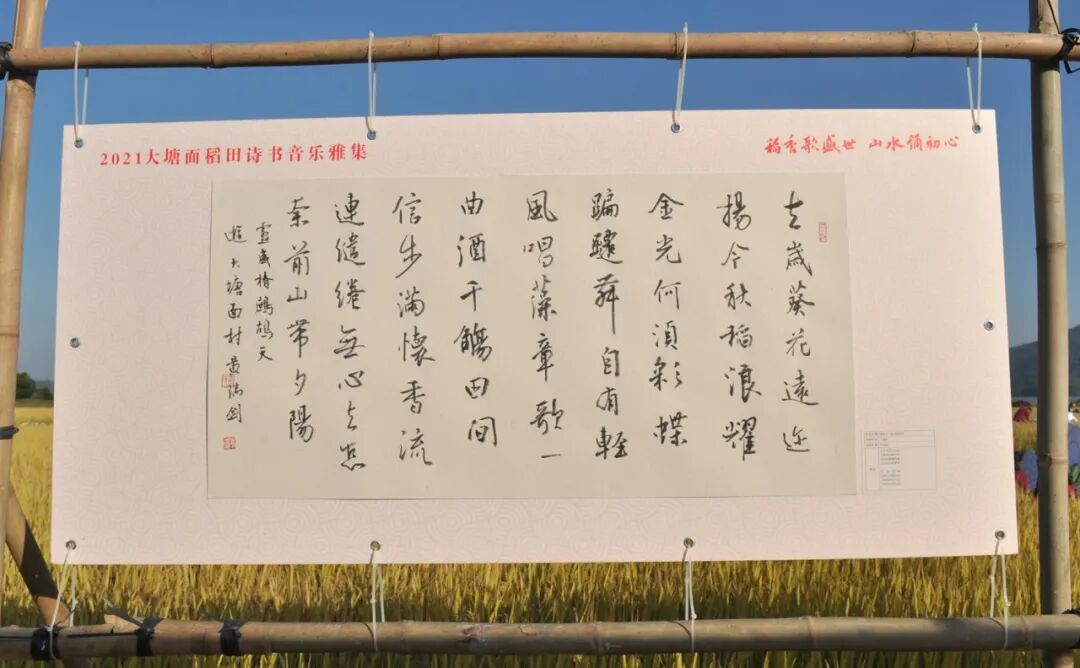 2021大塘面稻田诗书音乐雅集
稻香歌盛世 山水诵初心
去歲葵花遠近
揚今秋稻浪耀
金光何須彩蝶
蹁躚舞自有輕
風唱藻章歌一
曲酒千觴田間
信步滿懷香流
連繾綣無心去
奈前山帶夕陽
靈歲椿鷓鴣天
遊大塘面村 黄瑞剑